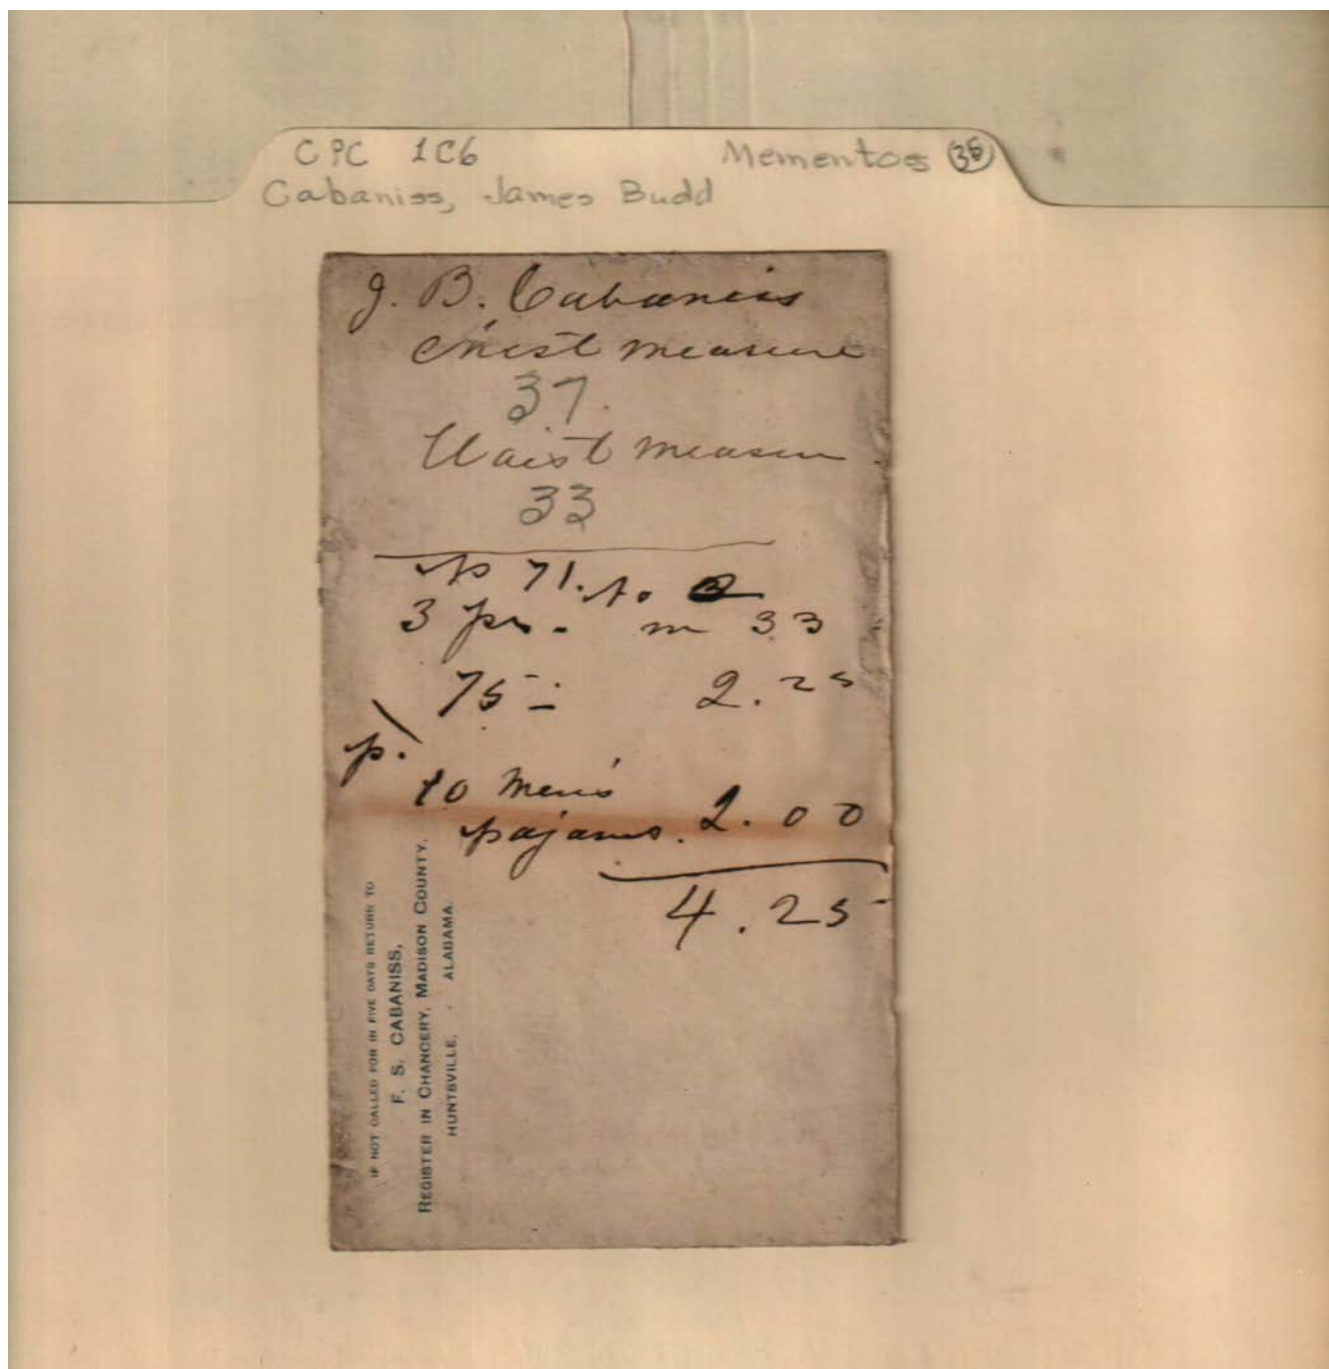 CPC 1C6 Mementoes 36
Cabaniss, James Budd
J. B. Cabaniss
Chest measure
37.
Waist measure
33
p 71. no 2
3 pr. - m 33
75 - 2.25
p.
to Men's
pajamas. 2.00
4.25
IF NOT CALLED FOR IN FIVE DAYS RETURN TO
F. S. CABANISS,
REGISTER IN CHANCERY, MADISON COUNTY,
HUNTSVILLE, ALABAMA.